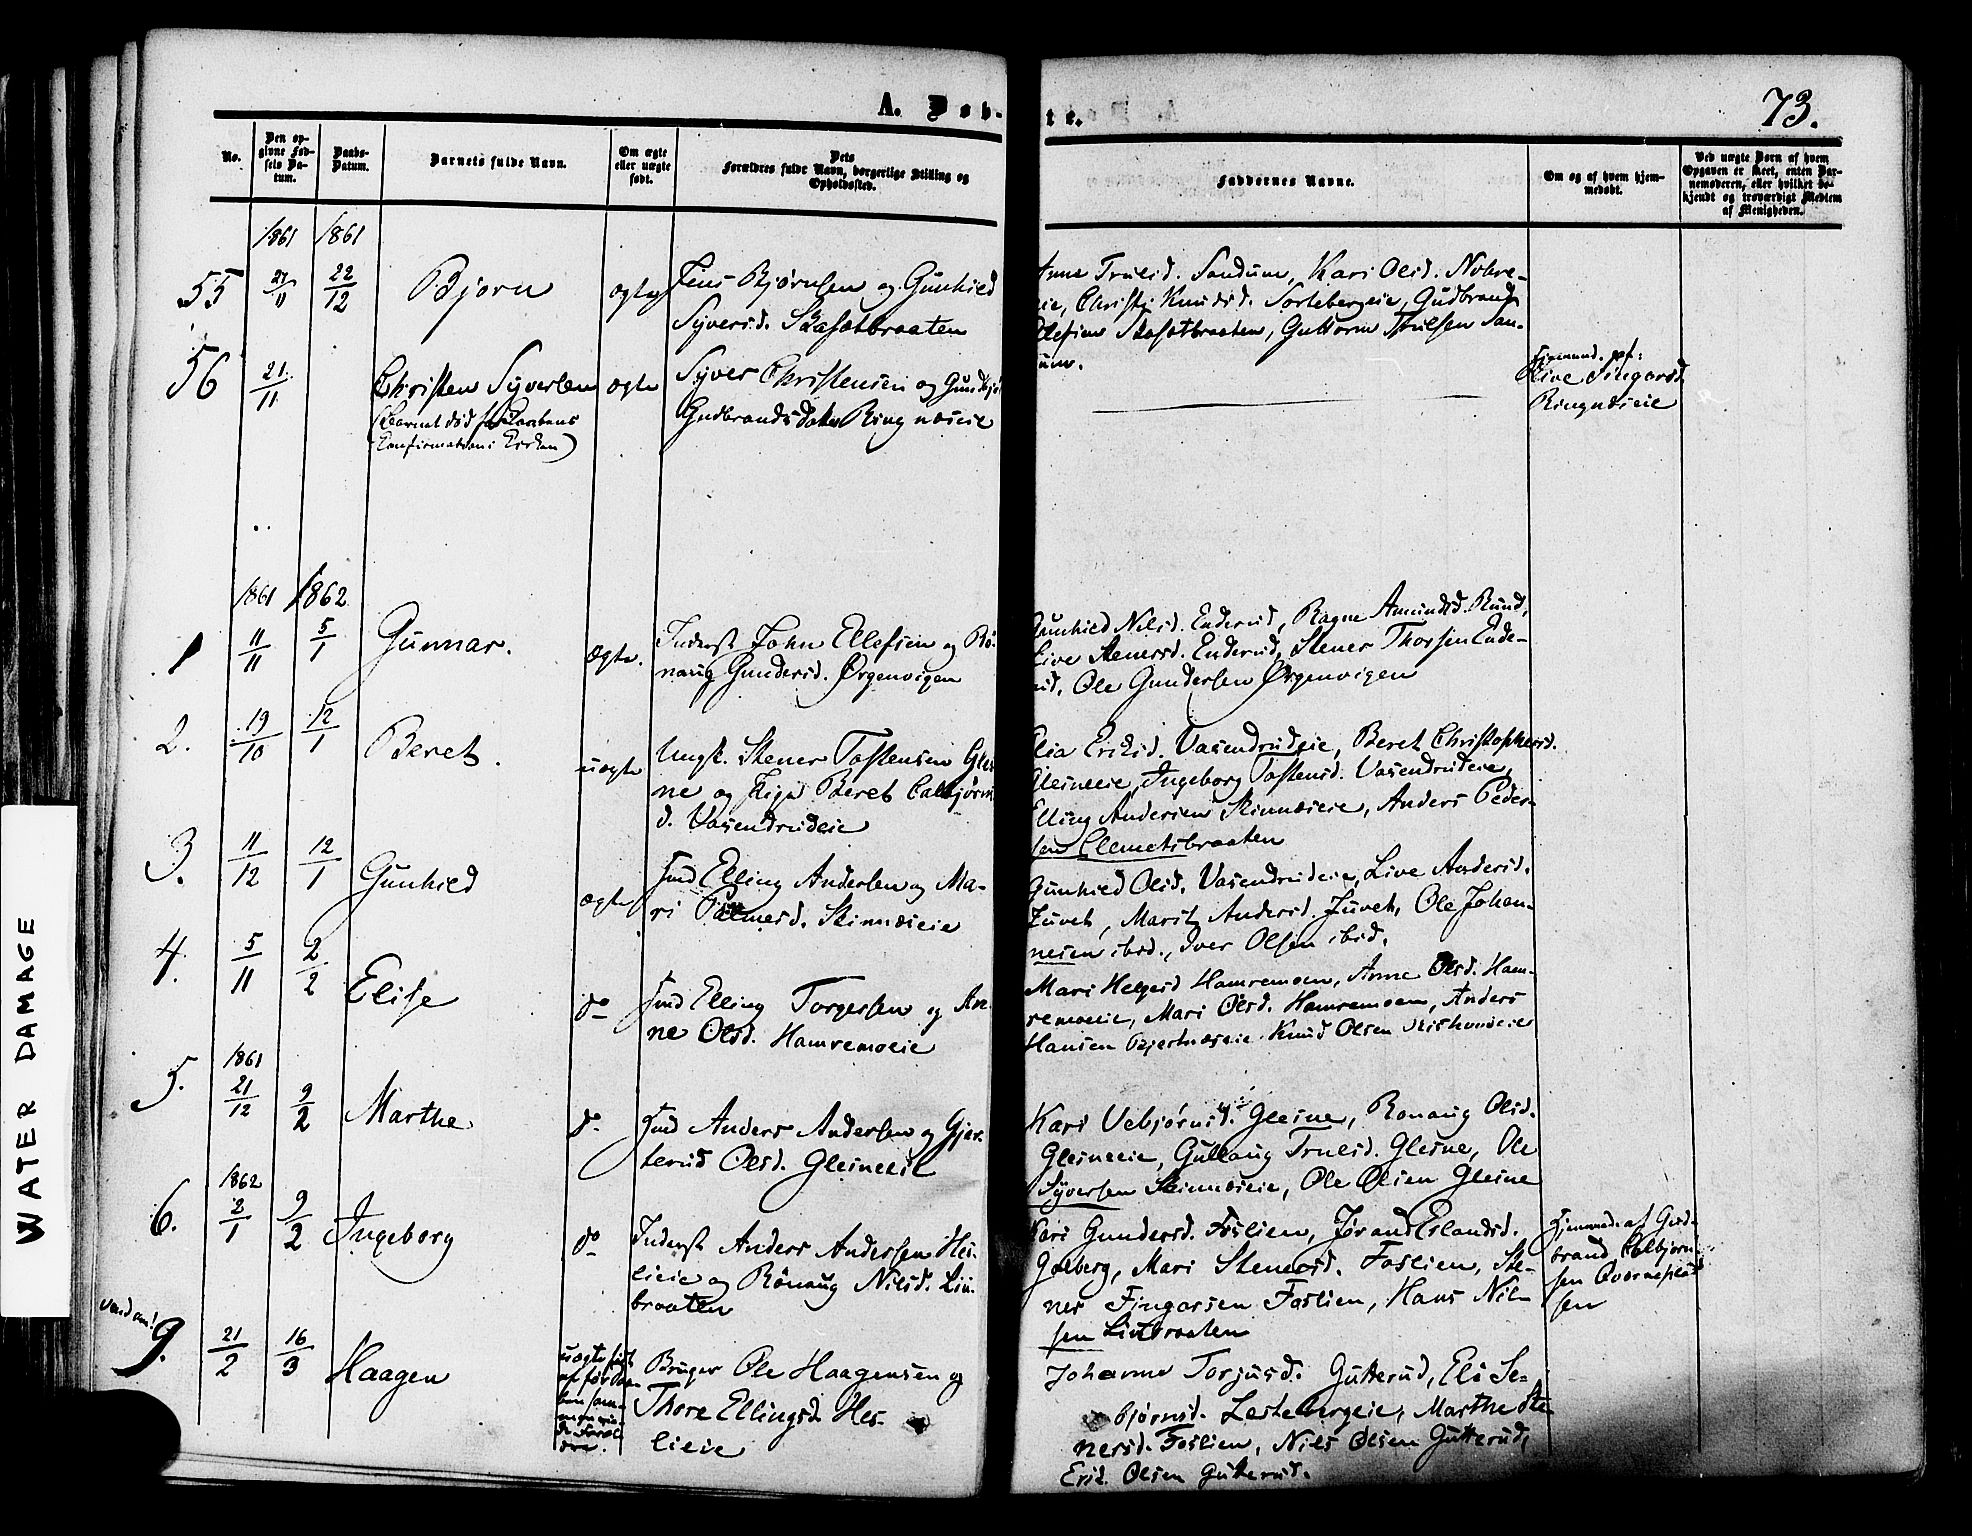 A. Døb-
te.
73.
No.
Den op-
givne Fød-
sels Da-
tum.
Daabs-
Datum.
Barnets fulde Navn.
Om ægte
eller uægte
født.
Dets
Forældres fulde Navn, borgerlige Stilling og
Opholdssted.
Faddernes Navne.
Om og af hvem hjem-
medøbt.
Ved uægte Børn af hvem
Opgaven er skeet, enten Bar-
nemoderen, eller hvilket be-
kjendt og troværdigt Medlem
af Menigheden.
1861 1861
55 21/11 22/12 Bjørn ægte Jens Bjørnsen og Gunhild
Syversd. Skasætbraaten
Anne Trulsd. Sandum, Kari Olsd. Nobre-
eie, Christi Knudsd. Sortebergeie, Gudbrand
Ellefsen Skasætbraaten, Guttorm Trulsen San-
dum.
56 21/11 Christen Syversen ægte Syver Christensen og
Gudbrandsdatter Ringnæseie
(Barnet død før Daabens
Confirmation i Kirken)
Hjemmed. af:
Live Fingarsd.
Ringnæseie
1861 1862
1 11/11 5/1 Gunnar. ægte. Inderst John Ellefsen og Rø-
naug Gundersd. Ørgenvigen
Gunhild Nilsd. Enderud, Ragne Amundsd. Rund,
Live Stenersd. Enderud, Stener Thorsen Ende-
rud, Ole Gundersen Ørgenvigen
2. 19/10 12/1 Beret. uægte Ungk. Stener Tostensen Gles-
ne og Pige Beret Colbjørns-
d. Vasendrudeie
Eriksd. Vasendrudeie, Beret Christophersd.
Glesneeie, Ingeborg Tostensd. Vasendrudeie,
Elling Andersen Skinnæseie, Anders Peder-
sen Clemetsbraaten
3. 11/12 12/1 Gunhild ægte Hmd Elling Andersen og Ma-
ri Palmesd. Skinnæseie
Gunhild Olsd. Vasendrudeie, Live Andersd.
Juvet, Marit Andersd. Juvet, Ole Johan-
nesen ibid., Iver Olsen ibid.
4. 5/11 2/2 Elise do Hmd Elling Torgersen og An-
ne Olsd. Hamremoeie
Mari Helgesd Hamremoen, Anne Olsd. Ham-
remoeie, Mari Olsd. Hamremoen, Anders
Hansen Bjertnæseie Knud Olsen
1861
5. 21/12 9/2 Marthe do Hmd Anders Andersen og Gjer-
terud Olsd. Glesneeie
Kari Vebjørnsd. Glesne, Ronaug Olsd.
Glesneeie, Gullaug Trulsd. Glesne, Ole
Syversen Skinnæseie, Ole Olsen Glesne
1862
6. 2/1 9/2 Ingeborg do Inderst Anders Andersen Hes-
lieie og Rønaug Nilsd. Lin-
braaten
Kari Gundersd. Foslien, Jørand Erlandsd.
Golberg, Mari Stenersd. Foslien, Ste-
ner Fingarsen Foslien, Hans Nil-
sen Linbraaten
Hjemmed. af Gud-
brand Colbjørn-
sen Qværneplad-
sen
vend om!
9. 21/2 16/3 Haagen Bruger Ole Haagensen og
Thore Ellingsd. Hes-
lieie
Johanne Torjusd. Gutterud, Eli Se-
bjørnsd. Lestebergeie, Marthe Ste-
nersd. Foslien, Nils Olsen Gutterud,
Erik Olsen Gutterud.
WATER DAMAGE